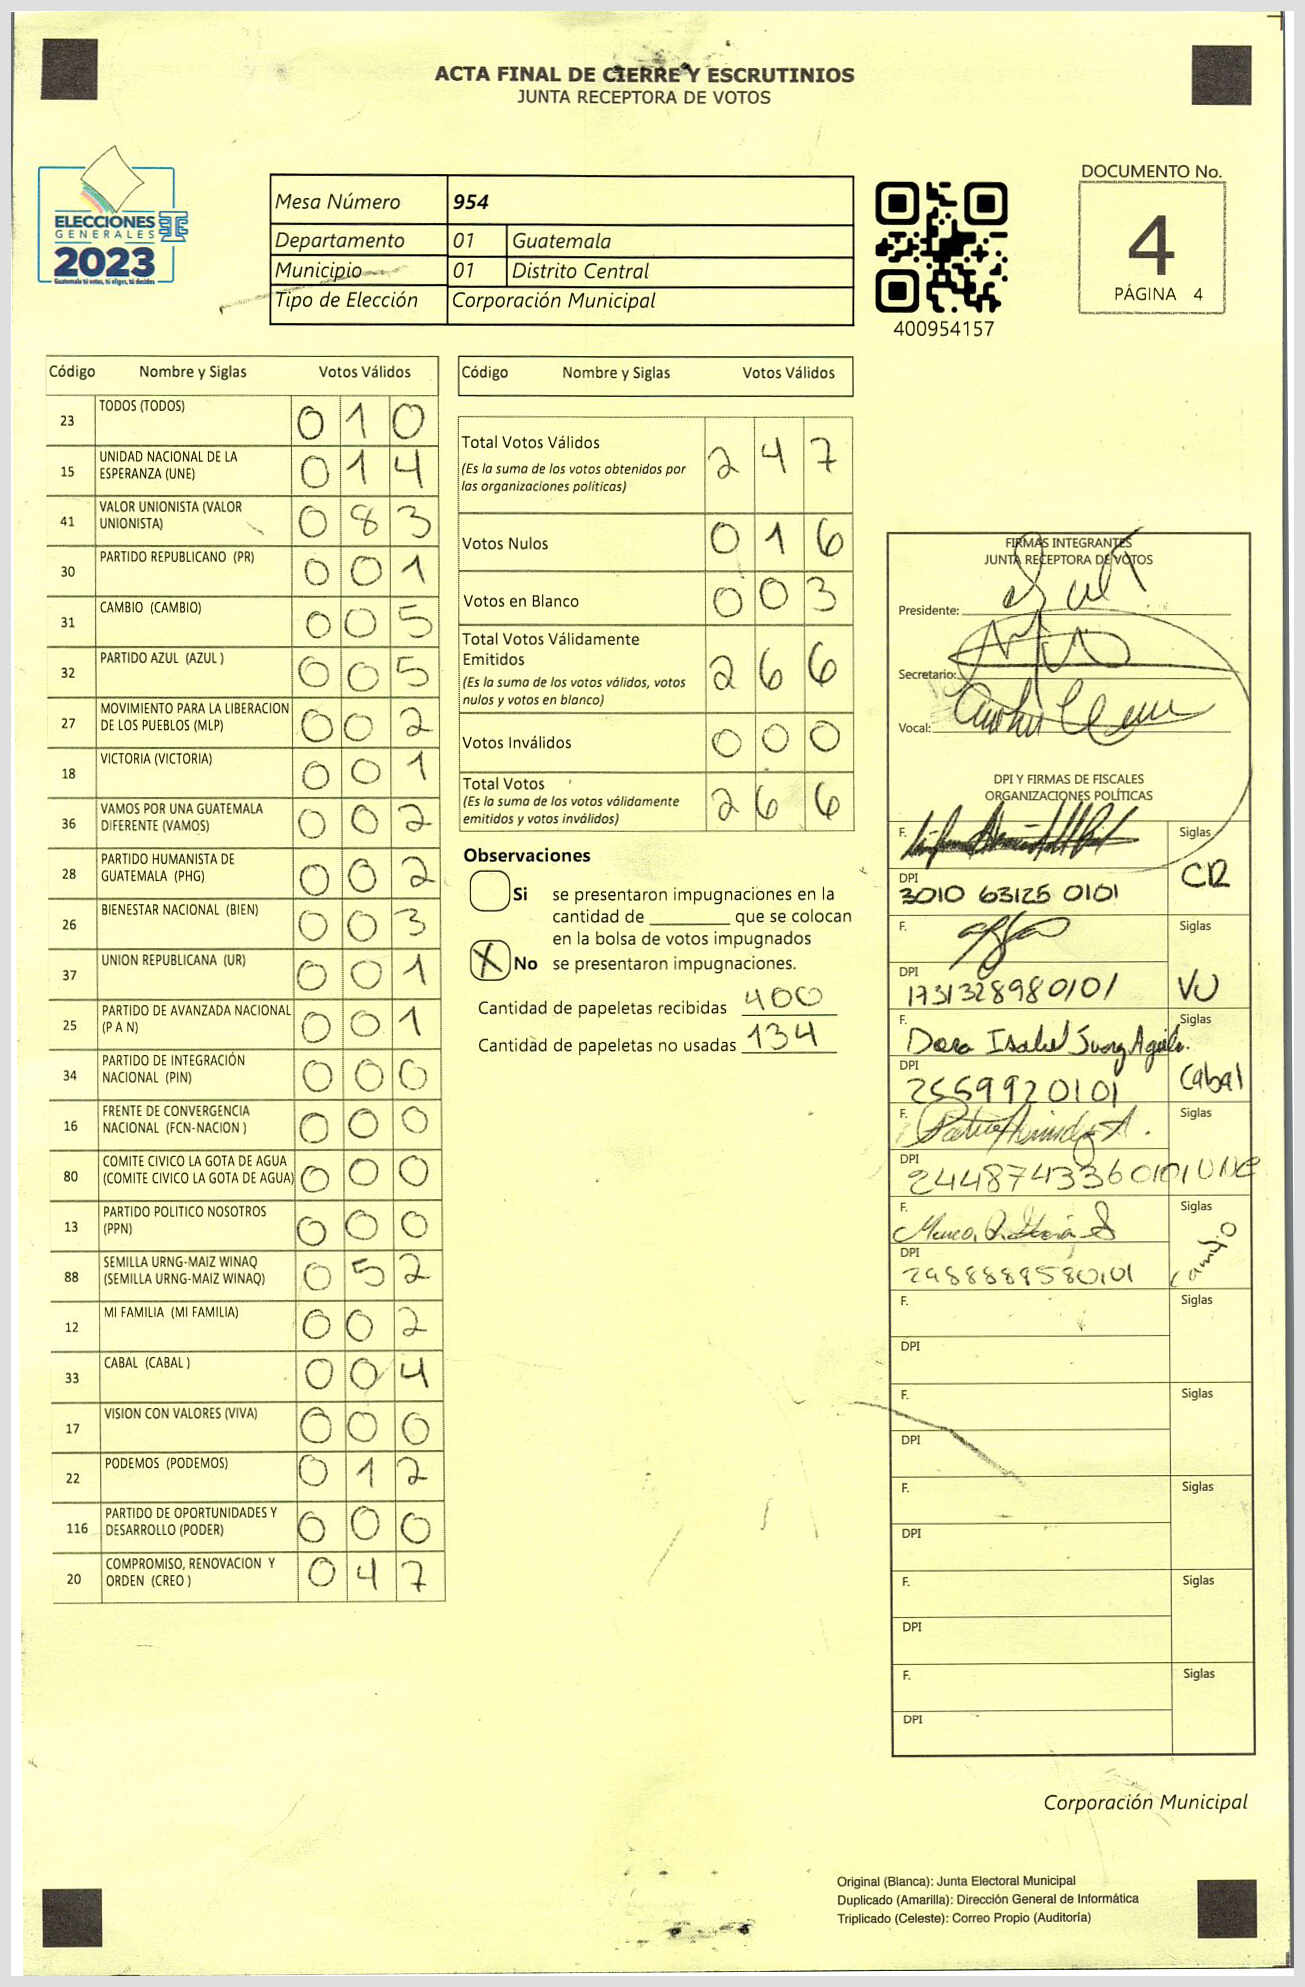 ACTA FINAL DE CIERRE Y ESCRUTINIOS
JUNTA RECEPTORA DE VOTOS
ELECCIONES
GENERALES
2023
Guatemala tú votas, tú eliges, tú decides
Mesa Número 954
Departamento 01 Guatemala
Municipio 01 Distrito Central
Tipo de Elección Corporación Municipal
400954157
DOCUMENTO No.
4
PÁGINA 4
Código Nombre y Siglas Votos Válidos
23 TODOS (TODOS) 0 1 0
15 UNIDAD NACIONAL DE LA
ESPERANZA (UNE) 0 1 4
41 VALOR UNIONISTA (VALOR
UNIONISTA) 0 8 3
30 PARTIDO REPUBLICANO (PR) 0 0 1
31 CAMBIO (CAMBIO) 0 0 5
32 PARTIDO AZUL (AZUL ) 0 0 5
27 MOVIMIENTO PARA LA LIBERACION
DE LOS PUEBLOS (MLP) 0 0 2
18 VICTORIA (VICTORIA) 0 0 1
36 VAMOS POR UNA GUATEMALA
DIFERENTE (VAMOS) 0 0 2
28 PARTIDO HUMANISTA DE
GUATEMALA (PHG) 0 0 2
26 BIENESTAR NACIONAL (BIEN) 0 0 3
37 UNION REPUBLICANA (UR) 0 0 1
25 PARTIDO DE AVANZADA NACIONAL
(P A N) 0 0 1
34 PARTIDO DE INTEGRACIÓN
NACIONAL (PIN) 0 0 0
16 FRENTE DE CONVERGENCIA
NACIONAL (FCN-NACION ) 0 0 0
80 COMITE CIVICO LA GOTA DE AGUA
(COMITE CIVICO LA GOTA DE AGUA) 0 0 0
13 PARTIDO POLITICO NOSOTROS
(PPN) 0 0 0
88 SEMILLA URNG-MAIZ WINAQ
(SEMILLA URNG-MAIZ WINAQ) 0 5 2
12 MI FAMILIA (MI FAMILIA) 0 0 2
33 CABAL (CABAL ) 0 0 4
17 VISION CON VALORES (VIVA) 0 0 0
22 PODEMOS (PODEMOS) 0 1 2
116 PARTIDO DE OPORTUNIDADES Y
DESARROLLO (PODER) 0 0 0
20 COMPROMISO, RENOVACION Y
ORDEN (CREO ) 0 4 7
Código Nombre y Siglas Votos Válidos
Total Votos Válidos 2 4 7
(Es la suma de los votos obtenidos por
las organizaciones políticas)
Votos Nulos 0 1 6
Votos en Blanco 0 0 3
Total Votos Válidamente
Emitidos 2 6 6
(Es la suma de los votos válidos, votos
nulos y votos en blanco)
Votos Inválidos 0 0 0
Total Votos 2 6 6
(Es la suma de los votos válidamente
emitidos y votos inválidos)
Observaciones
Si se presentaron impugnaciones en la
cantidad de ________ que se colocan
en la bolsa de votos impugnados
X No se presentaron impugnaciones.
Cantidad de papeletas recibidas 400
Cantidad de papeletas no usadas 134
FIRMAS INTEGRANTES
JUNTA RECEPTORA DE VOTOS
Presidente:
Secretario:
Vocal:
DPI Y FIRMAS DE FISCALES
ORGANIZACIONES POLÍTICAS
F. Siglas
DPI CR
3010 63125 0101
F. Siglas
DPI VU
1731328980101
F. Dora Isabel Siglas
DPI Cabal
2559920101
F. Siglas
DPI
2448743360101 UNE
F. Siglas
DPI Cambio
F. Siglas
DPI
F. Siglas
DPI
F. Siglas
DPI
F. Siglas
DPI
F. Siglas
DPI
Corporación Municipal
Original (Blanca): Junta Electoral Municipal
Duplicado (Amarilla): Dirección General de Informática
Triplicado (Celeste): Correo Propio (Auditoría)